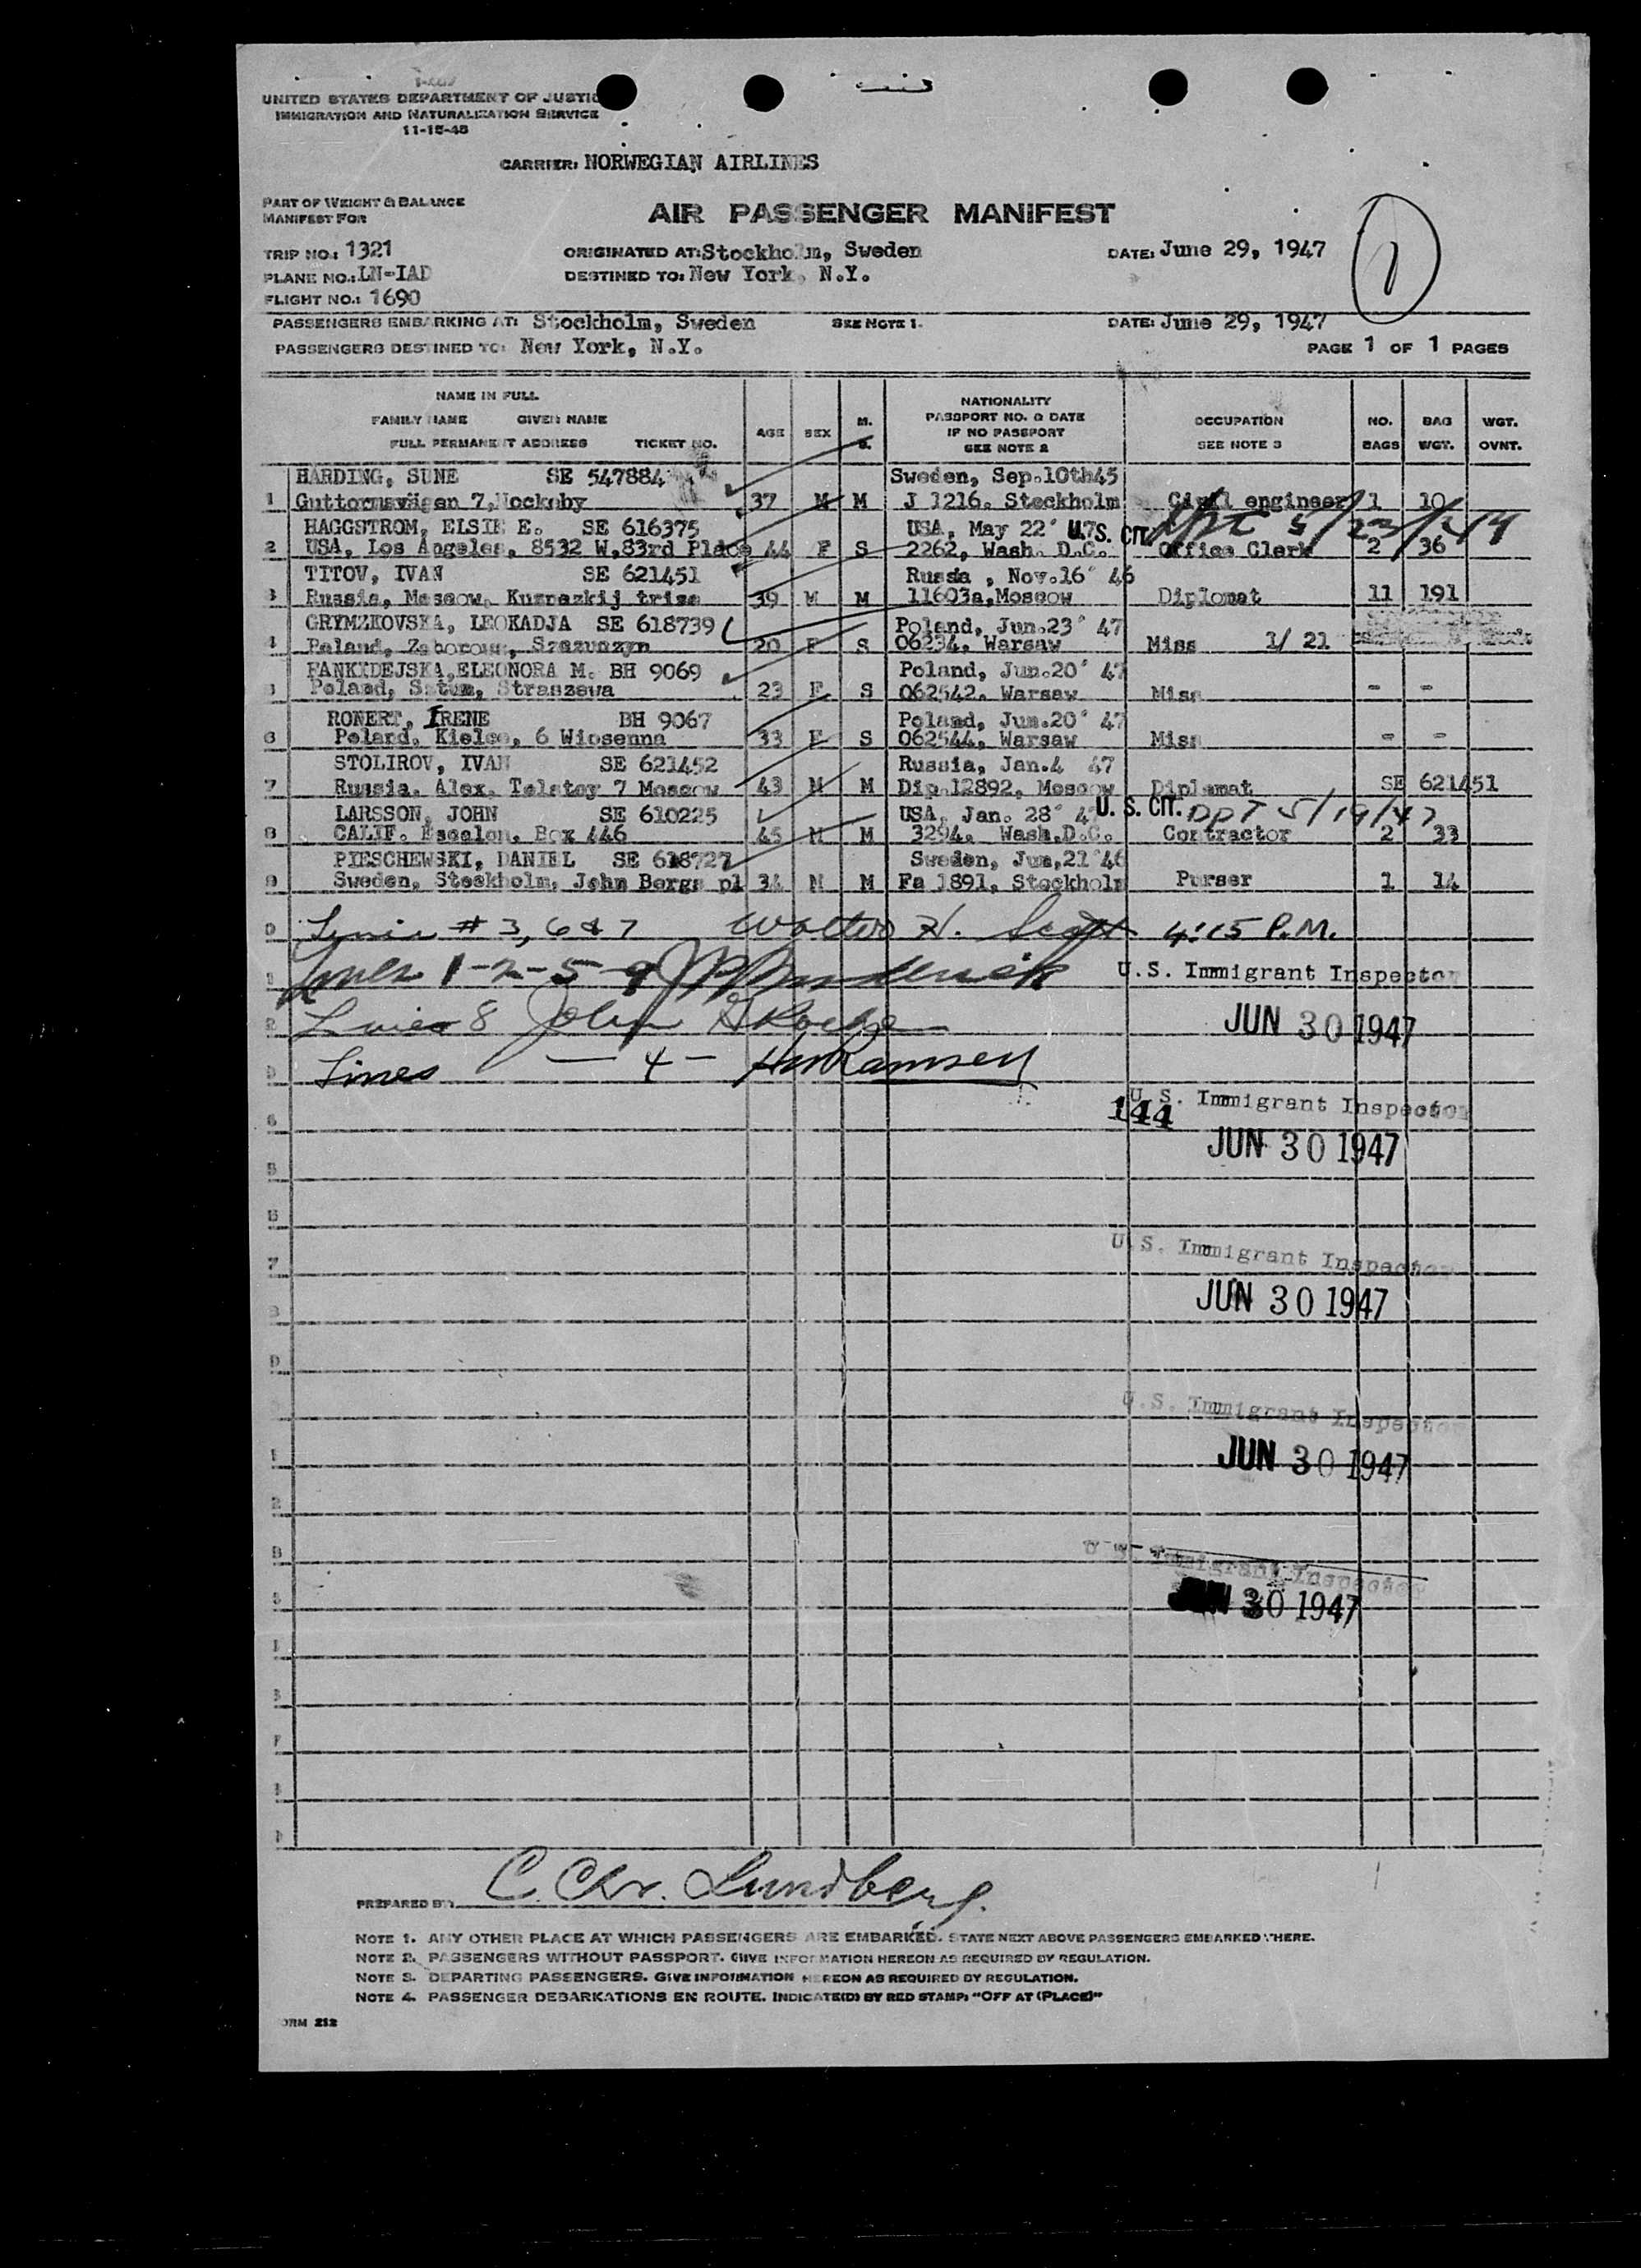 UNITED STATES DEPARTMENT OF JUSTIC
IMMIGRATION AND NATURALIZATION SERVICE
11-15-45
CARRIER: NORWEGIAN AIRLINES
PART OF WEIGHT & BALANCE
MANIFEST FOR
AIR PASSENGER MANIFEST
TRIP NO.: 1321 ORIGINATED AT: Stockholm, Sweden DATE: June 29, 1947 1
PLANE NO.: LN-IAD DESTINED TO: New York, N.Y.
FLIGHT NO.: 1690
PASSENGERS EMBARKING AT: Stockholm, Sweden SEE NOTE 1. DATE: June 29, 1947
PASSENGERS DESTINED TO: New York, N.Y. PAGE 1 OF 1 PAGES
NAME IN FULL NATIONALITY
FAMILY NAME GIVEN NAME M. PASSPORT NO. & DATE OCCUPATION NO. BAG WGT.
FULL PERMANENT ADDRESS TICKET NO. AGE SEX S. IF NO PASSPORT SEE NOTE 3 BAGS WGT. OVNT.
SEE NOTE 2
HARDING, SUNE SE 547884 Sweden, Sep.10th45
1 Guttormsvägen 7,Nockeby 37 M M J 1216. Stockholm Civil engineer 1 10
HAGGSTROM, ELSIE E. SE 616375 USA, May 22' 47 U.S. CIT.
2 USA, Los Angeles, 8532 W,83rd Place 44 F S 2262, Wash. D.C. Office Clerk 2 36
TITOV, IVAN SE 621451 Russia , Nov.16' 46
3 Russia, Moscow, Kuznazkij trisa 39 M M 11603a,Moscow Diplomat 11 191
GRYMZKOVSKA, LEOKADJA SE 618739 Poland, Jun.23' 47
4 Poland, 20 F S 06234, Warsaw Miss 1/ 21
PANKIDEJSKA,ELEONORA M. BH 9069 Poland, Jun.20' 47
Poland, Sztum, Straszewa 23 F S 062542, Warsaw Miss - -
RONERT, IRENE BH 9067 Poland, Jun.20' 47
6 Poland, Kielce, 6 Wiosenna 33 F S 062544, Warsaw Miss - -
STOLIROV, IVAN SE 621452 Russia, Jan.4 47
7 Russia. Alex. Tolstoy 7 Moscow 43 M M Dip.12892, Moscow Diplomat SE 621451
LARSSON, JOHN SE 610225 USA, Jan. 28' 47 U. S. CIT. DPT 5/19/47
8 CALIF. Escalon, Box 446 45 M M 3294, Wash.D.C. Contractor 2 33
PIESCHEWSKI, DANIEL SE 618727 Sweden, Jun,21'46
9 Sweden, Stockholm, John Bergs pl 34 M M Fa 1891, Stockholm Purser 1 14
# 3, 6 & 7 Walter H. Scott 4:15 P.M.
Lines 1-2-5-9 U.S. Immigrant Inspector
Lines 8 John JUN 30 1947
Lines - 4 - Ramsey
U.S. Immigrant Inspector
144
JUN 30 1947
U.S. Immigrant Inspector
JUN 30 1947
U.S. Immigrant Inspector
JUN 30 1947
U.S. Immigrant Inspector
JUN 30 1947
PREPARED BY: C. Chr. Lundberg.
NOTE 1. ANY OTHER PLACE AT WHICH PASSENGERS ARE EMBARKED. STATE NEXT ABOVE PASSENGERS EMBARKED THERE.
NOTE 2. PASSENGERS WITHOUT PASSPORT. GIVE INFORMATION HEREON AS REQUIRED BY REGULATION.
NOTE 3. DEPARTING PASSENGERS. GIVE INFORMATION HEREON AS REQUIRED BY REGULATION.
NOTE 4. PASSENGER DEBARKATIONS EN ROUTE. INDICATE(D) BY RED STAMP: "OFF AT (PLACE)"
ORM 212